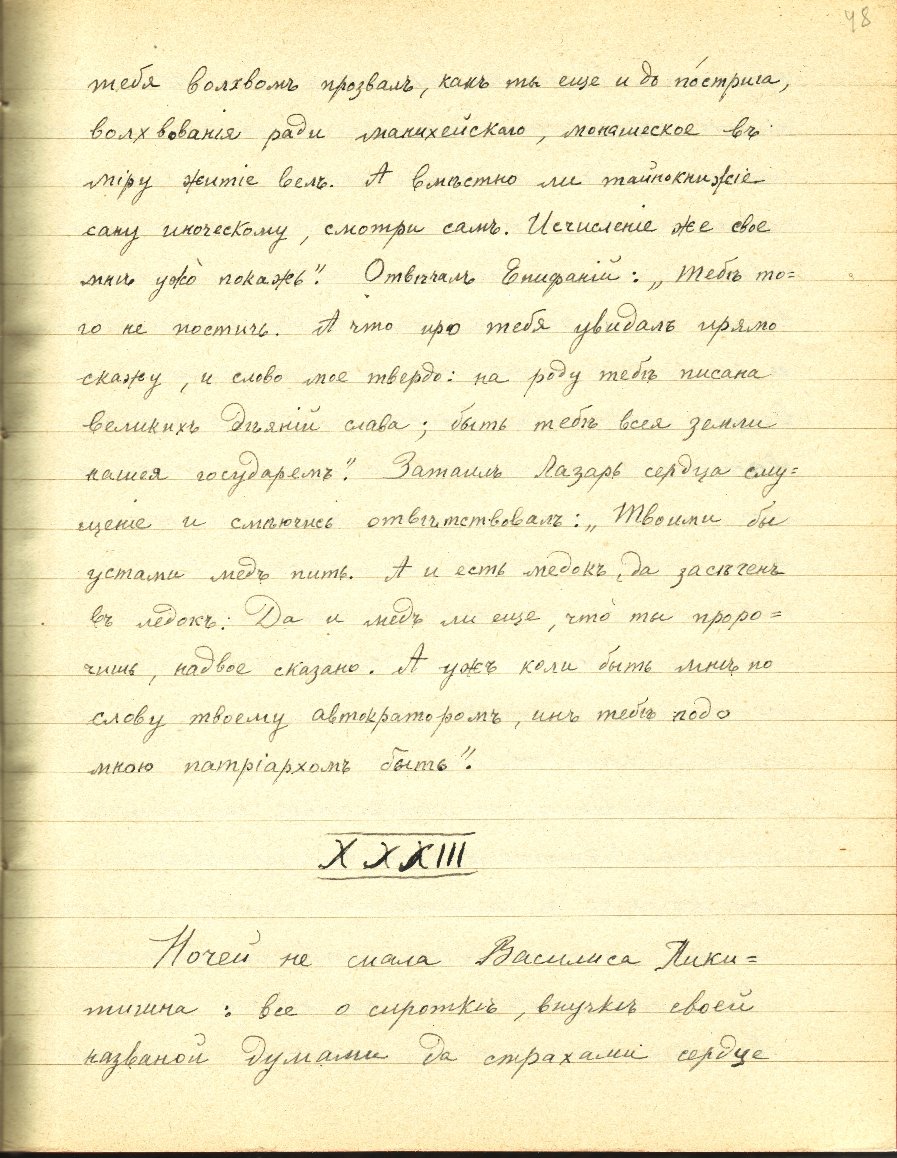 48
тебя волхвомъ прозвалъ, какъ ты еще и до пострига,
волхвованія ради манихейскаго, монашеское въ
міру житіе велъ. А вмѣстно ли тайнокнижіе
сану иноческому, смотри самъ. Исчисленіе же свое
мнѣ ужо̀ покажь". Отвѣчалъ Епифаній: „Тебѣ то=
го не постичь. А что про тебя увидалъ прямо
скажу, и слово мое твердо: на роду тебѣ писана
великихъ дѣяній слава; быть тебѣ всея земли
нашея государемъ". Затаилъ Лазарь сердца сму=
щеніе и смѣючись отвѣтствовалъ: „Твоими бы
устами медъ пить. А и есть медокъ, да засѣченъ
въ ледокъ. Да и медъ ли еще, что ты проро=
чишь, надвое сказано. А ужъ коли быть мнѣ по
слову твоему автократоромъ, инъ тебѣ подо
мною патріархомъ быть".
XXXIII
Ночей не спала Василиса Мики=
тишна: все о сироткѣ, внучкѣ своей
названой думами да страхами сердце